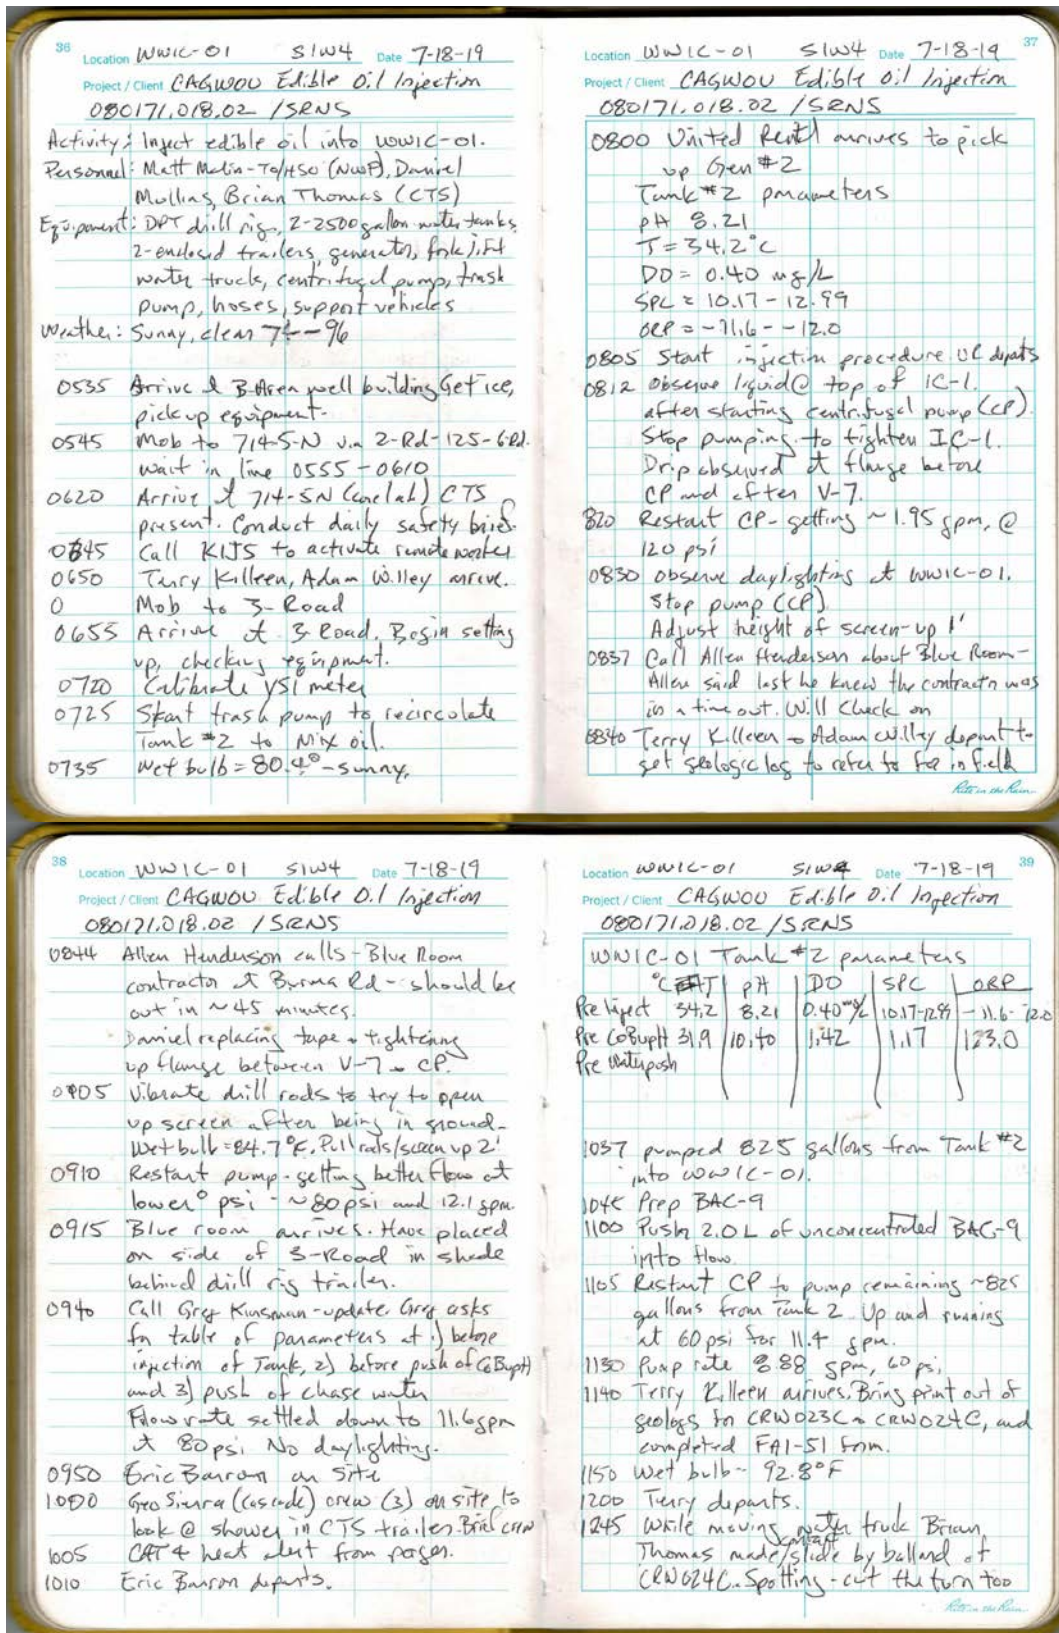 36
Location WWIC-01 SIW4 Date 7-18-19
Project / Client CAGWOU Edible Oil Injection
080171.018.02 /SRNS
Activity: Inject edible oil into WWIC-01.
Personnel: Matt Malin-TO/HSO (NWP), Daniel
Mullins, Brian Thomas (CTS)
Equipment: DPT drill rig, 2-2500 gallon water tanks,
2-enclosed trailers, generator, forklift
water truck, centrifugal pump, trash
pump, hoses, support vehicles
Weather: Sunny, clear 74--96
0535 Arrive @ B-Area well building Get ice,
pick up equipment.
0545 Mob to 714-5-N via 2-Rd-125-6-Rd.
wait in line 0555-0610
0620 Arrive at 714-5N (corelab) CTS
present. Conduct daily safety brief.
0645 Call KIJS to activate remote worker
0650 Terry Killeen, Adam Willey arrive.
0 Mob to 3-Road
0655 Arrive at 3 Road. Begin setting
up, checking equipment.
0720 Calibrate YSI meter
0725 Start trash pump to recirculate
Tank #2 to mix oil.
0735 Wet bulb = 80.4° - sunny.
37
Location WWIC-01 SIW4 Date 7-18-19
Project / Client CAGWOU Edible Oil Injection
080171.018.02 /SRNS
0800 United Rental arrives to pick
up Gen #2
Tank #2 parameters
pH 8.21
T = 34.2°C
DO = 0.40 mg/L
SPC = 10.17-12.99
ORP = -11.6--12.0
0805 Start injection procedure UR departs
0812 Observe liquid @ top of IC-1.
after starting centrifugal pump (CP).
Stop pumping to tighten IC-1.
Drip observed at flange before
CP and after V-7.
820 Restart CP- getting ~1.95 gpm, @
120 psi
0830 Observe daylighting at WWIC-01.
Stop pump (CP).
Adjust height of screen-up 1'
0837 Call Allen Henderson about Blue Room-
Allen said last he knew the contractr was
in a time out. Will check on
0840 Terry Killeen & Adam Willey depart to
get geologic log to refer to for in field
Rite in the Rain
38
Location WWIC-01 SIW4 Date 7-18-19
Project / Client CAGWOU Edible Oil Injection
080171.018.02 /SRNS
0844 Allen Henderson calls - Blue Room
contractor at Burma Rd - should be
out in ~45 minutes.
Daniel replacing tape & tightening
up flange between V-7 & CP.
0905 Vibrate drill rods to try to open
up screen after being in ground-
Wet bulb=84.7°F. Pull rods/screen up 2'
0910 Restart pump-getting better flow at
lower psi - ~80psi and 12.1 gpm.
0915 Blue room arrives. Have placed
on side of 3-Road in shade
behind drill rig trailer.
0940 Call Greg Kinsman-update. Greg asks
for table of parameters at 1) before
injection of Tank, 2) before push of CoBupH
and 3) push of chase water
Flow rate settled down to 11.6gpm
at 80psi No daylighting.
0950 Eric Barron on site
1000 GeoSierra (Cascade) crew (3) on site to
look @ shower in CTS trailer. Brief crew
1005 CAT 4 heat alert from pager.
1010 Eric Barron departs.
39
Location WWIC-01 SIW4 Date 7-18-19
Project / Client CAGWOU Edible Oil Injection
080171.018.02 /SRNS
WWIC-01 Tank #2 parameters
°C T pH DO SPC ORP
Pre Inject 34.2 8.21 0.40 mg/L 10.17-12.99 -11.6--12.0
Pre CoBupH 31.9 10.40 1.42 1.17 123.0
Pre Waterpush
1037 pumped 825 gallons from Tank #2
into WWIC-01.
1045 Prep BAC-9
1100 Push 2.0 L of unconcentrated BAC-9
into flow.
1105 Restart CP to pump remaining ~825
gallons from Tank 2. Up and running
at 60 psi for 11.4 gpm.
1130 Pump rate 8.88 gpm, 60 psi.
1140 Terry Killeen arrives. Bring print out of
geologs for CRW023C & CRW024C, and
completed FA1-51 form.
1150 Wet bulb- 92.8°F
1200 Terry departs.
1245 While moving water truck Brian
Thomas made contact/slide by bollard at
CRW024C. Spotting-cut the turn too
Rite in the Rain